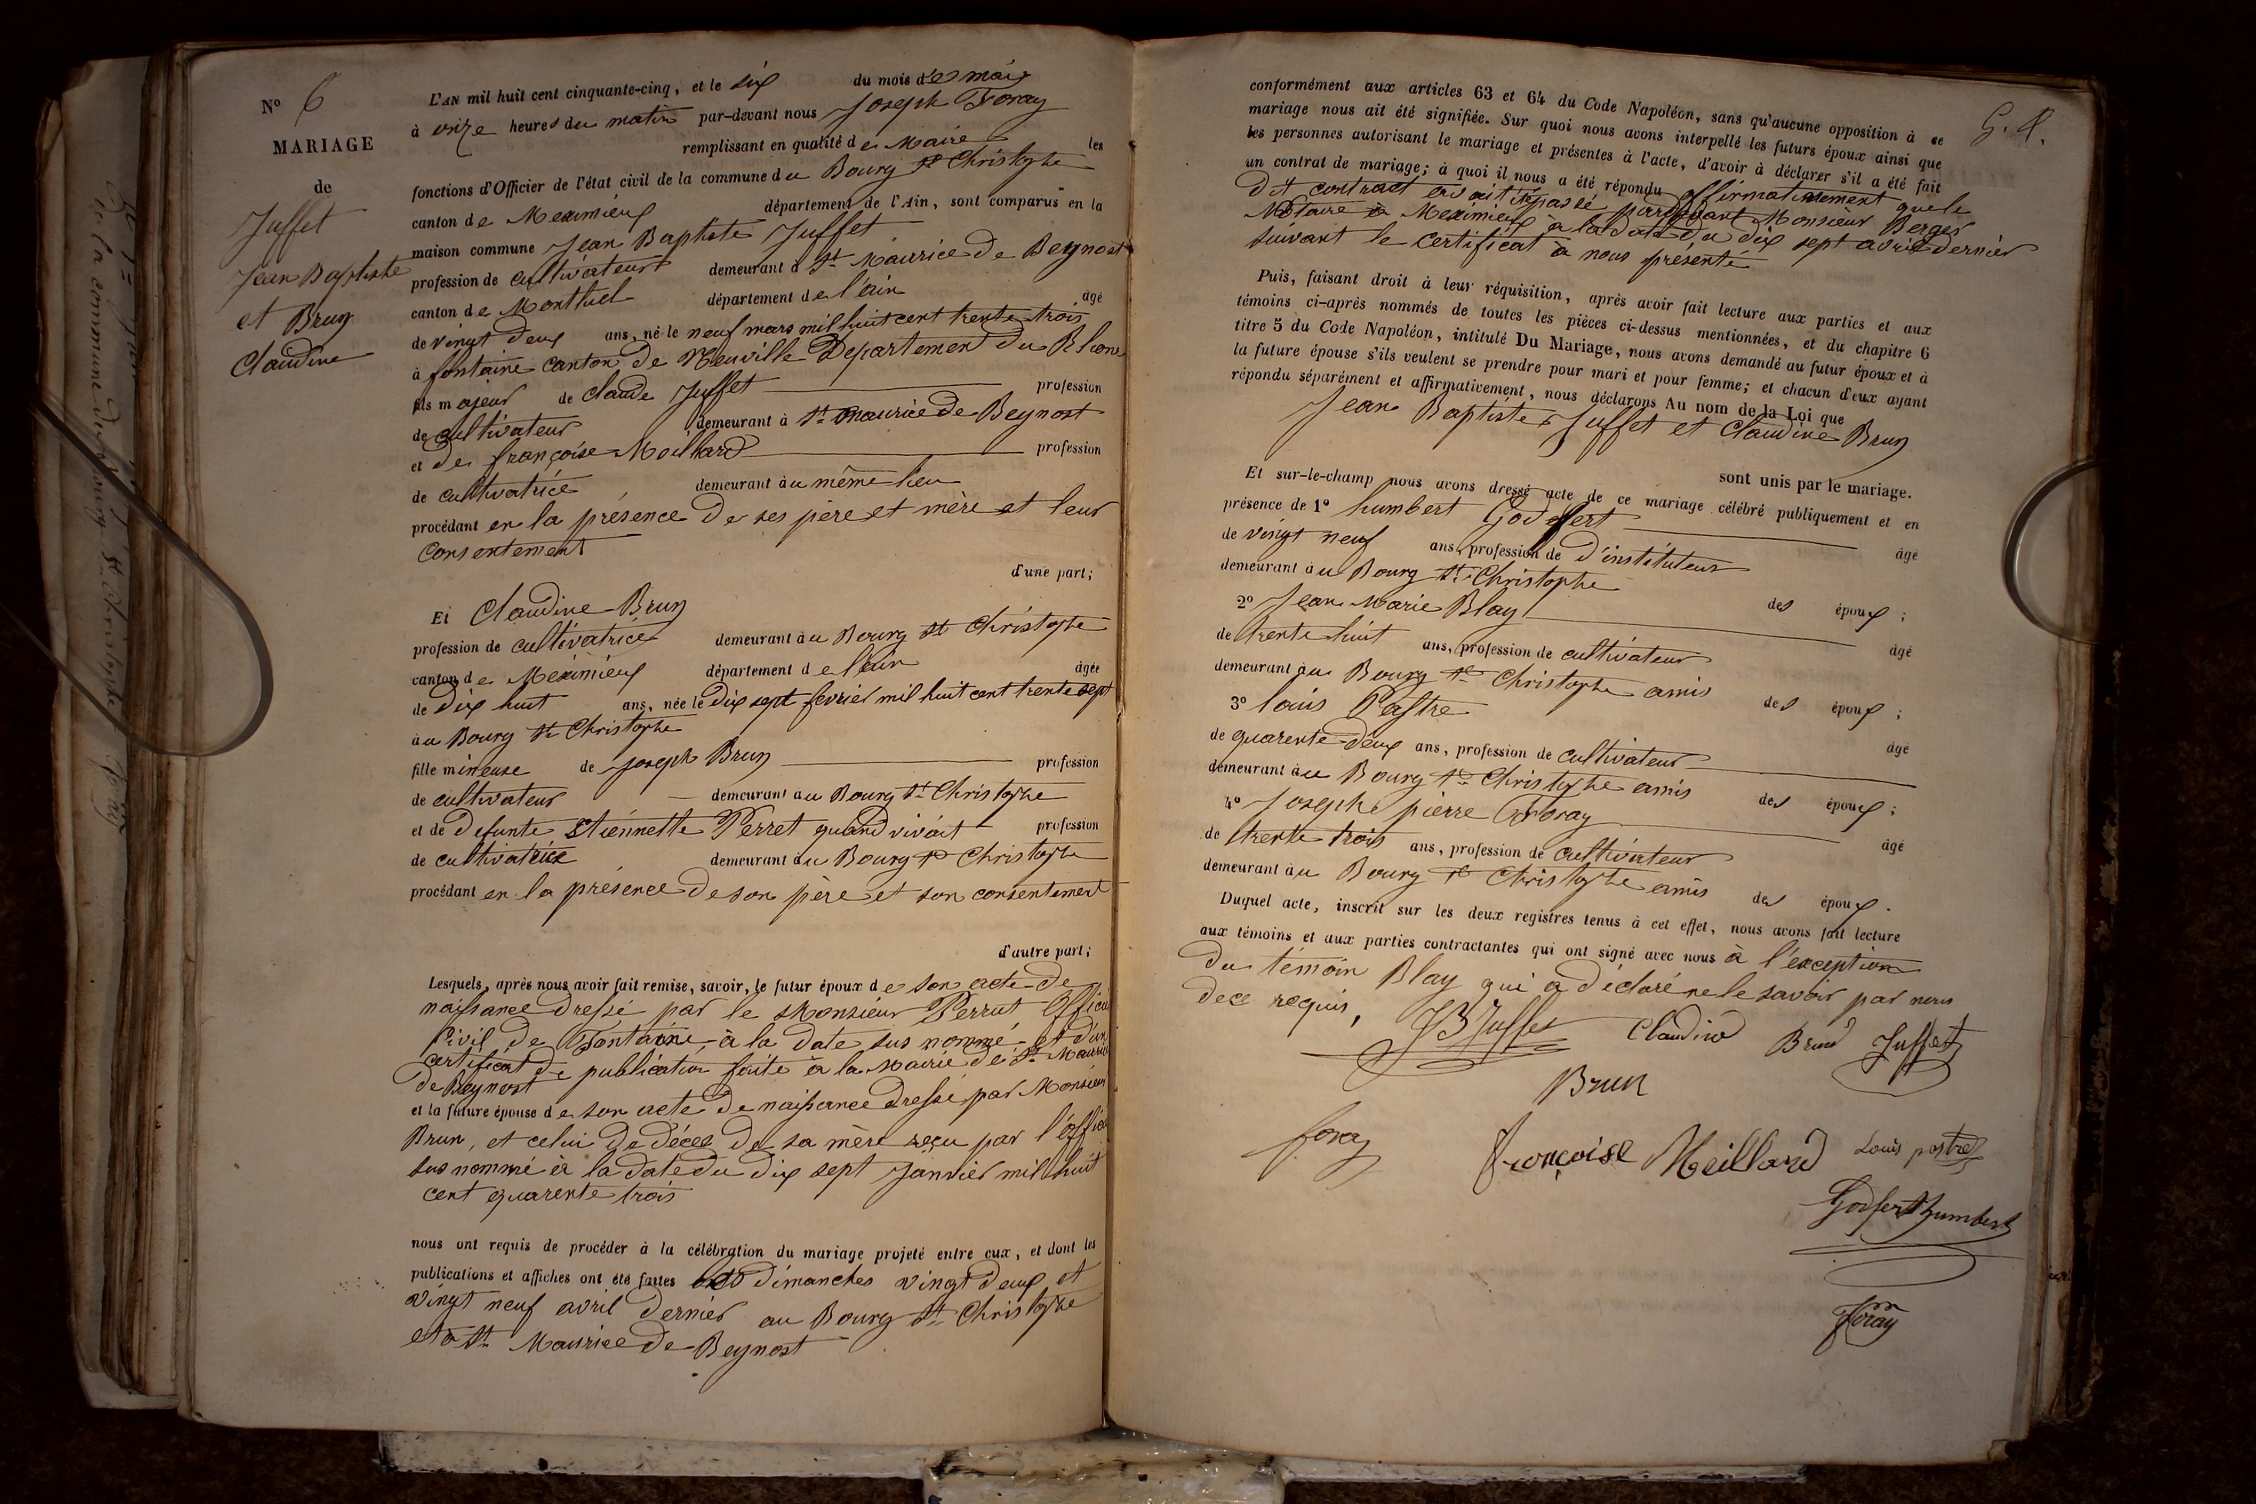 N° 6
MARIAGE
de
Juffet
Jean Baptiste
et Brun
Claudine
L'AN mil huit cent cinquante-cinq, et le six du mois de mai
à onze heures du matin par-devant nous Joseph Foray
remplissant en qualité de Maire les
fonctions d'Officier de l'état civil de la commune du Bourg St Christophe
canton de Meximieux département de l'Ain, sont comparus en la
maison commune Jean Baptiste Juffet
profession de cultivateur demeurant à St Maurice de Beynost
canton de Montluel département de l'ain âgé
de vingt deux ans, né le neuf mars mil huit cent trente trois
à fontaine canton de Neuville Departement du Rhone
fils majeur de Claude Juffet profession
de cultivateur demeurant à St Maurice de Beynost
et de françoise Meillard profession
de cultivatrice demeurant au même lieu
procédant en la présence de ses père et mère et leur
consentement
d'une part;
Et Claudine Brun
profession de cultivatrice demeurant au Bourg St Christophe
canton de Meximieux département de l'ain âgée
de dix huit ans, née le dix sept fevrier mil huit cent trente sept
au Bourg St Christophe
fille mineure de Joseph Brun profession
de cultivateur demeurant au Bourg St Christophe
et de defunte Etiennette Perret quand vivait profession
de cultivatrice demeurant au Bourg St Christophe
procédant en la présence de son père et son consentement
d'autre part;
Lesquels, après nous avoir fait remise, savoir, le futur époux de son acte de
naissance dressé par le Monsieur Perrut Officier
Civil de Fontaine à la date sus nommé et d'un
certificat de publication faite à la Mairie de St Maurice
de Beynost
et la future épouse de son acte de naissance dressé par Monsieur
Brun, et celui de décès de sa mère reçu par l'officier
sus nommé à la date du dix sept Janvier mil huit
cent quarente trois
nous ont requis de procéder à la célébration du mariage projeté entre eux, et dont les
publications et affiches ont été faites les dimanches vingt deux et
vingt neuf avril dernier au Bourg St Christophe
et à St Maurice de Beynost
conformément aux articles 63 et 64 du Code Napoléon, sans qu'aucune opposition à ce
mariage nous ait été signifiée. Sur quoi nous avons interpellé les futurs époux ainsi que
les personnes autorisant le mariage et présentes à l'acte, d'avoir à déclarer s'il a été fait
un contrat de mariage; à quoi il nous a été répondu affirmativement que le
dit contract avait été passé pardevant Monsieur Berger
Notaire à Meximieux à la date du dix sept avril dernier
suivant le certificat à nous présenté
Puis, faisant droit à leur réquisition, après avoir fait lecture aux parties et aux
témoins ci-après nommés de toutes les pièces ci-dessus mentionnées, et du chapitre 6
titre 5 du Code Napoléon, intitulé Du Mariage, nous avons demandé au futur époux et à
la future épouse s'ils veulent se prendre pour mari et pour femme; et chacun d'eux ayant
répondu séparément et affirmativement, nous déclarons Au nom de la Loi que
Jean Baptiste Juffet et Claudine Brun
sont unis par le mariage.
Et sur-le-champ nous avons dressé acte de ce mariage célébré publiquement et en
présence de 1° humbert Godefert âgé
de vingt neuf ans, profession de d'instituteur
demeurant au Bourg St Christophe des époux;
2° Jean Marie Blay âgé
de trente huit ans, profession de cultivateur
demeurant au Bourg St Christophe amis des époux;
3° louis Pastre âgé
de quarente deux ans, profession de cultivateur
demeurant au Bourg St Christophe amis des époux;
4° Joseph pierre Foray âgé
de trente trois ans, profession de cultivateur
demeurant au Bourg St Christophe amis des époux.
Duquel acte, inscrit sur les deux registres tenus à cet effet, nous avons fait lecture
aux témoins et aux parties contractantes qui ont signé avec nous à l'exception
du témoin Blay qui a déclaré ne le savoir par nous
de ce requis,
JB Juffet Claudine Brun Juffet
Brun
foray
françoise Meillard Louis pastre
Godfert humbert
Foray